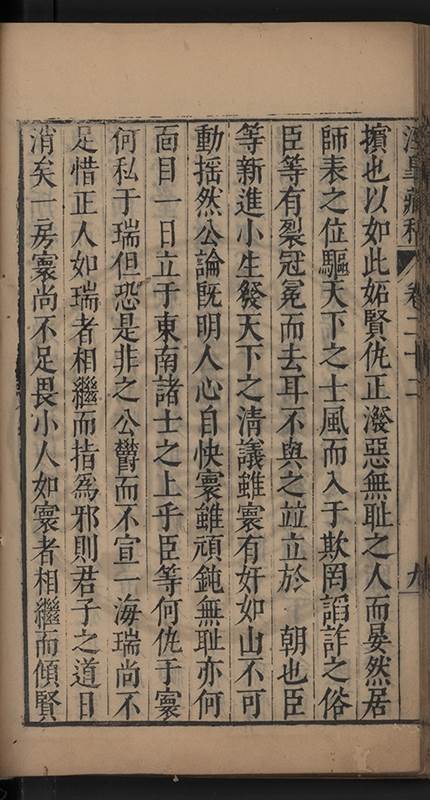 涇臯藏稿 卷二十二 九
擯也以如此妬賢仇正潑惡無耻之人而晏然居
師表之位驅天下之士風而入于欺罔謟詐之俗
臣等有裂冠冕而去耳不與之竝立於 朝也臣
等新進小生發天下之清議雖寰有奸如山不可
動搖然公論既明人心自快寰雖頑鈍無耻亦何
面目一日立于東南諸士之上乎臣等何仇于寰
何私于瑞但恐是非之公鬱而不宣一海瑞尚不
足惜正人如瑞者相繼而指為邪則君子之道日
消矣一房寰尚不足畏小人如寰者相繼而傾賢